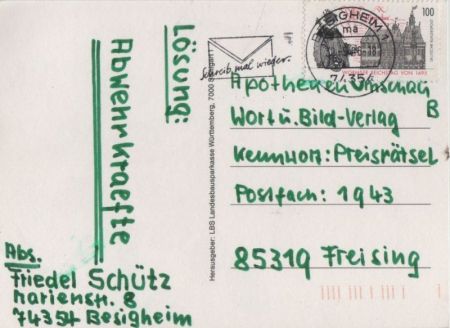 Lösung:
Abwehrkraefte
Abs.
Friedel Schütz
Marienstr. 8
74354 Besigheim
Herausgeber: LBS Landesbausparkasse Württemberg, 7000 Stuttgart 1
Schreib mal wieder.
BESIGHEIM
ma
74354
100
WORMSER REICHSTAG VON 1495
Apotheken Umschau
B
Wort u. Bild-Verlag
Kennwort: Preisrätsel
Postfach: 1943
85319 Freising